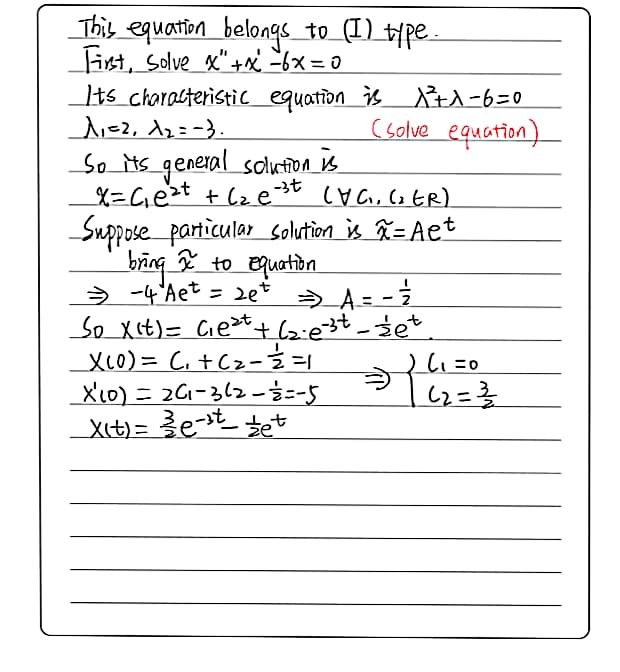 This equation belongs to (I) type.
First, solve x''+x'-6x=0
Its characteristic equation is λ²+λ-6=0
λ₁=2, λ₂=-3. (solve equation)
So its general solution is
x=C₁e²ᵗ + C₂e⁻³ᵗ (∀C₁, C₂∈R)
Suppose particular solution is x̃=Aeᵗ
bring x̃ to equation
⇒ -4Aeᵗ = 2eᵗ ⇒ A = -½
So x(t)= C₁e²ᵗ + C₂·e⁻³ᵗ - ½eᵗ.
x(0) = C₁ + C₂ - ½ = 1 ⇒ { C₁=0
x'(0) = 2C₁-3C₂-½=-5 C₂=3/2
x(t) = 3/2 e⁻³ᵗ - ½eᵗ